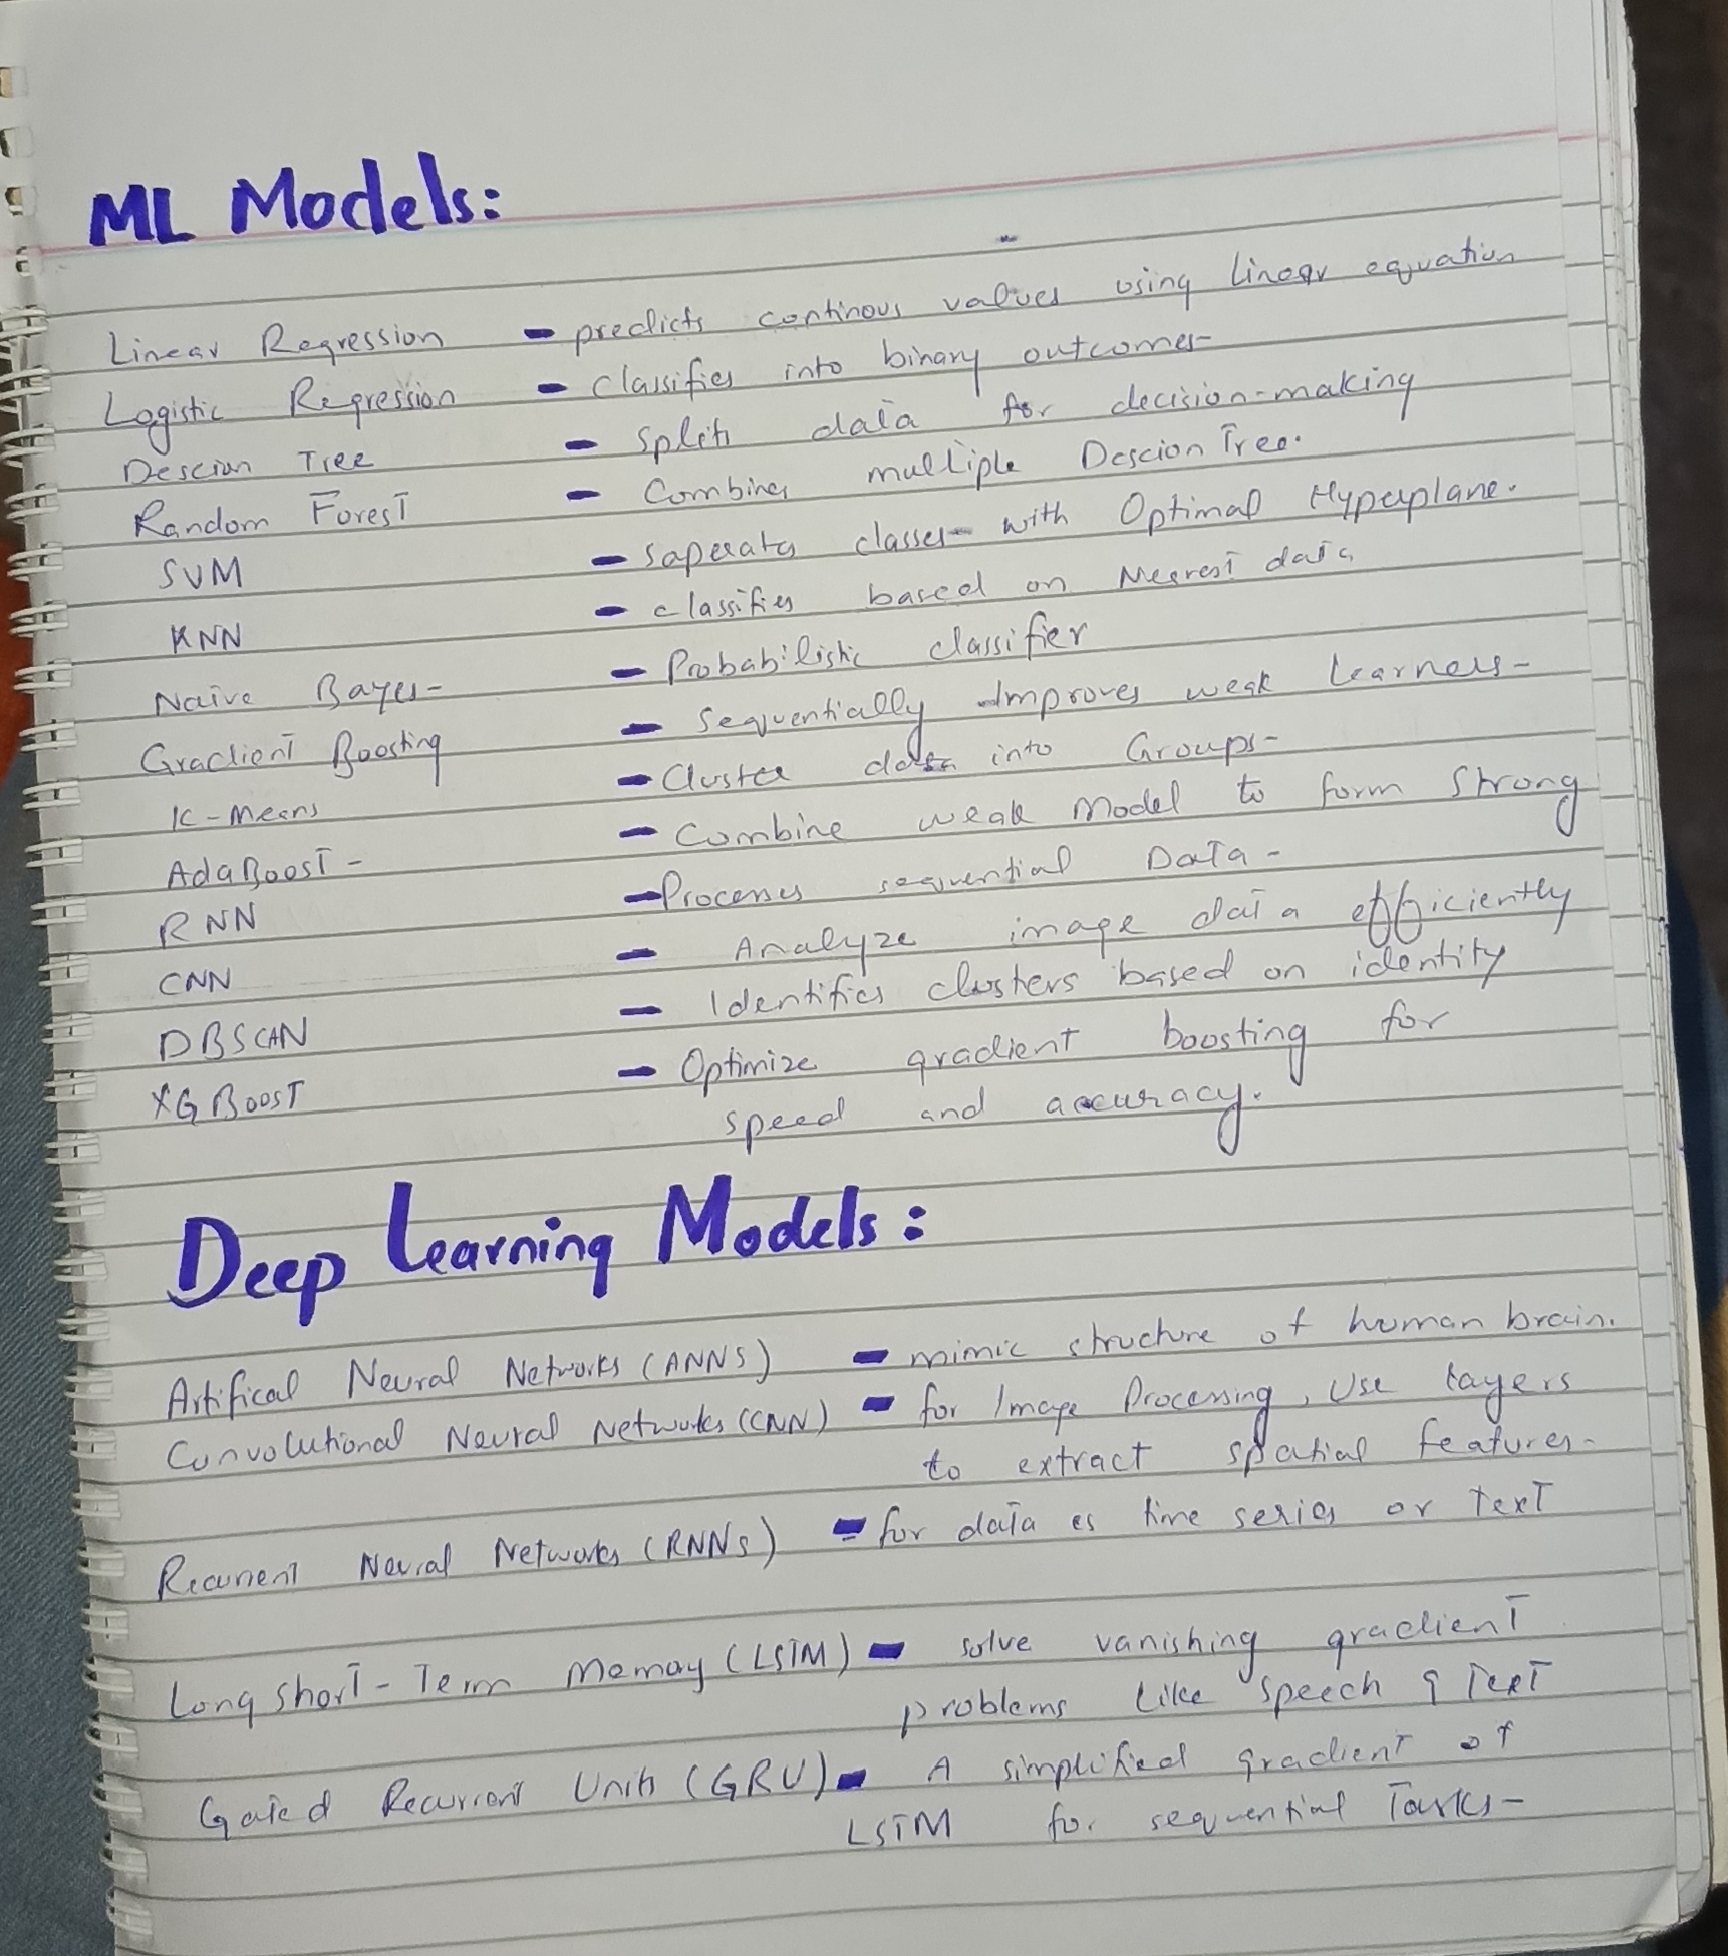 ML Models:
Linear Regression - predicts continous values using linear equation
Logistic Regression - classifies into binary outcomes-
Descion Tree - splits data for decision-making
Random Forest - Combines multiple Descion Tree.
SVM - saperates classes with Optimal Hyperplane.
KNN - classifies based on Nearest data
Naive Bayes- - Probabilistic classifier
Gradient Boosting - Sequentially Improves weak learners-
K-Means - Cluster data into Groups-
AdaBoost- - Combine weak Model to form Strong
RNN - Processes sequential Data-
CNN - Analyze image data efficiently
DBSCAN - Identifies clusters based on identity
XGBoost - Optimize gradient boosting for
speed and accuracy.
Deep Learning Models:
Artifical Neural Networks (ANNS) - mimic structure of human brain.
Convolutional Neural Networks (CNN) - for Image Processing, Use layers
to extract spatial features-
Recurrent Neural Networks (RNNs) - for data as time series or text
Long short-Term Memory (LSTM) - solve vanishing gradient
problems like speech & Text
Gated Recurrent Units (GRU) - A simplified gradient of
LSTM for sequential Tasks-